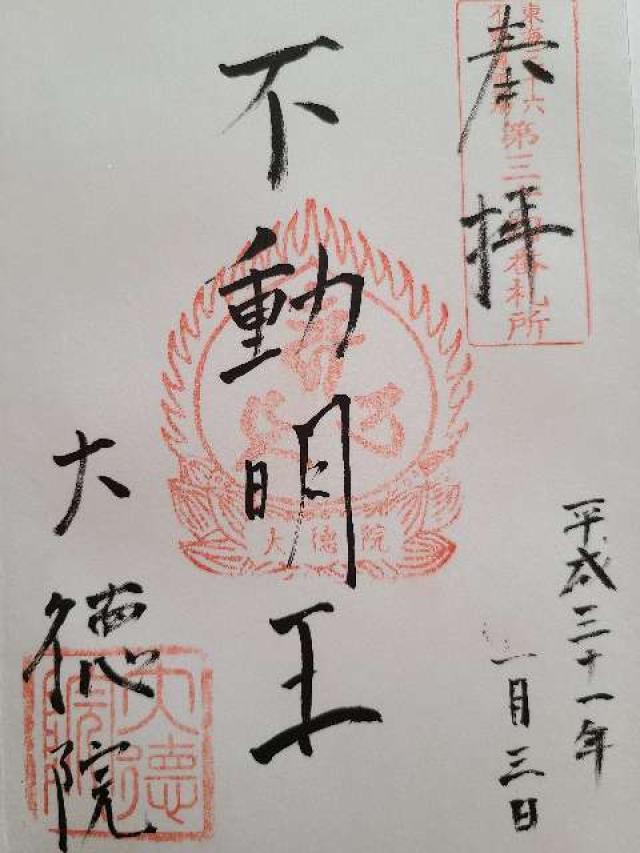 奉拝
東海三十六
不動尊霊場
第三十四番札所
不動明王
大徳院
大徳院
大徳院
平成三十一年
一月三日